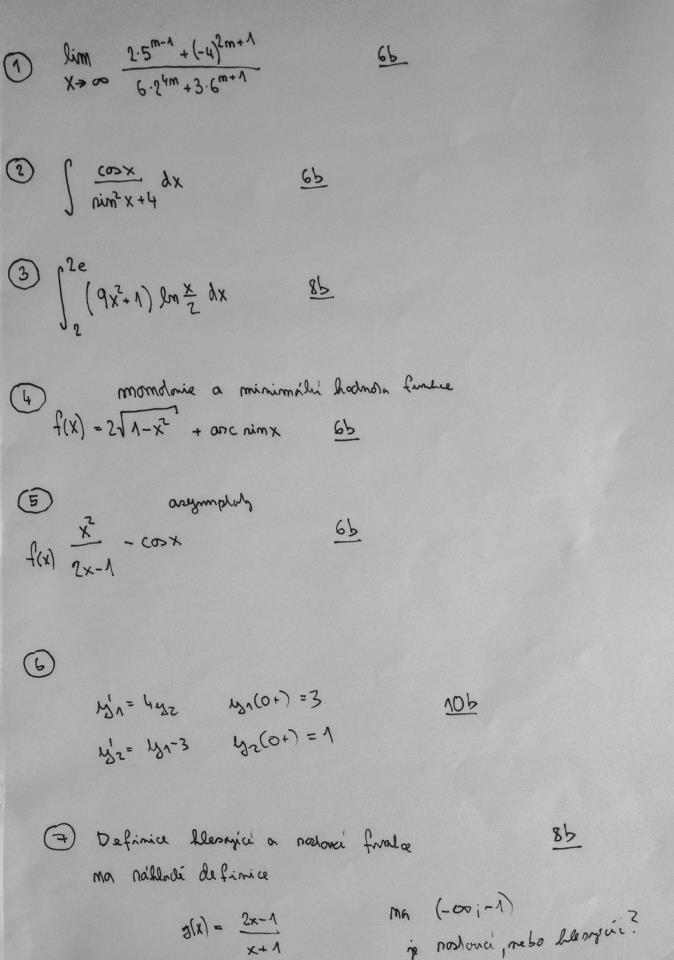 ① lim x→∞ (2·5^(n-1) + (-4)^(2n+1)) / (6·2^(4n) + 3·6^(n+1)) 6b
② ∫ cosx / (sin²x+4) dx 6b
③ ∫_2^(2e) (9x²+1) ln x/2 dx 8b
④ monotonie a minimální hodnota funkce
f(x) = 2√(1-x²) + arcsinx 6b
⑤ asymptoty
f(x) x² / (2x-1) - cosx 6b
⑥
y'₁ = 4y₂ y₁(0+) = 3 10b
y'₂ = y₁-3 y₂(0+) = 1
⑦ Definice klesající a rostoucí funkce 8b
na základě definice
g(x) = (2x-1) / (x+1) na (-∞;-1)
je rostoucí, nebo klesající?